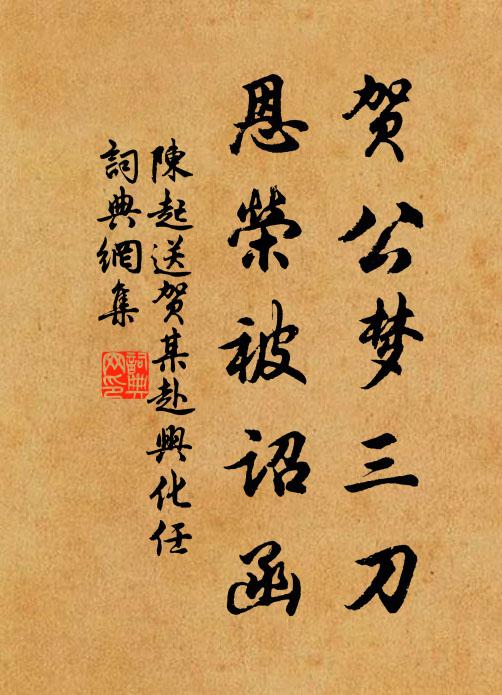 贺公梦三刀
恩榮被诏函
陳起送贺某赴興化任
詞典網集
詞典網印